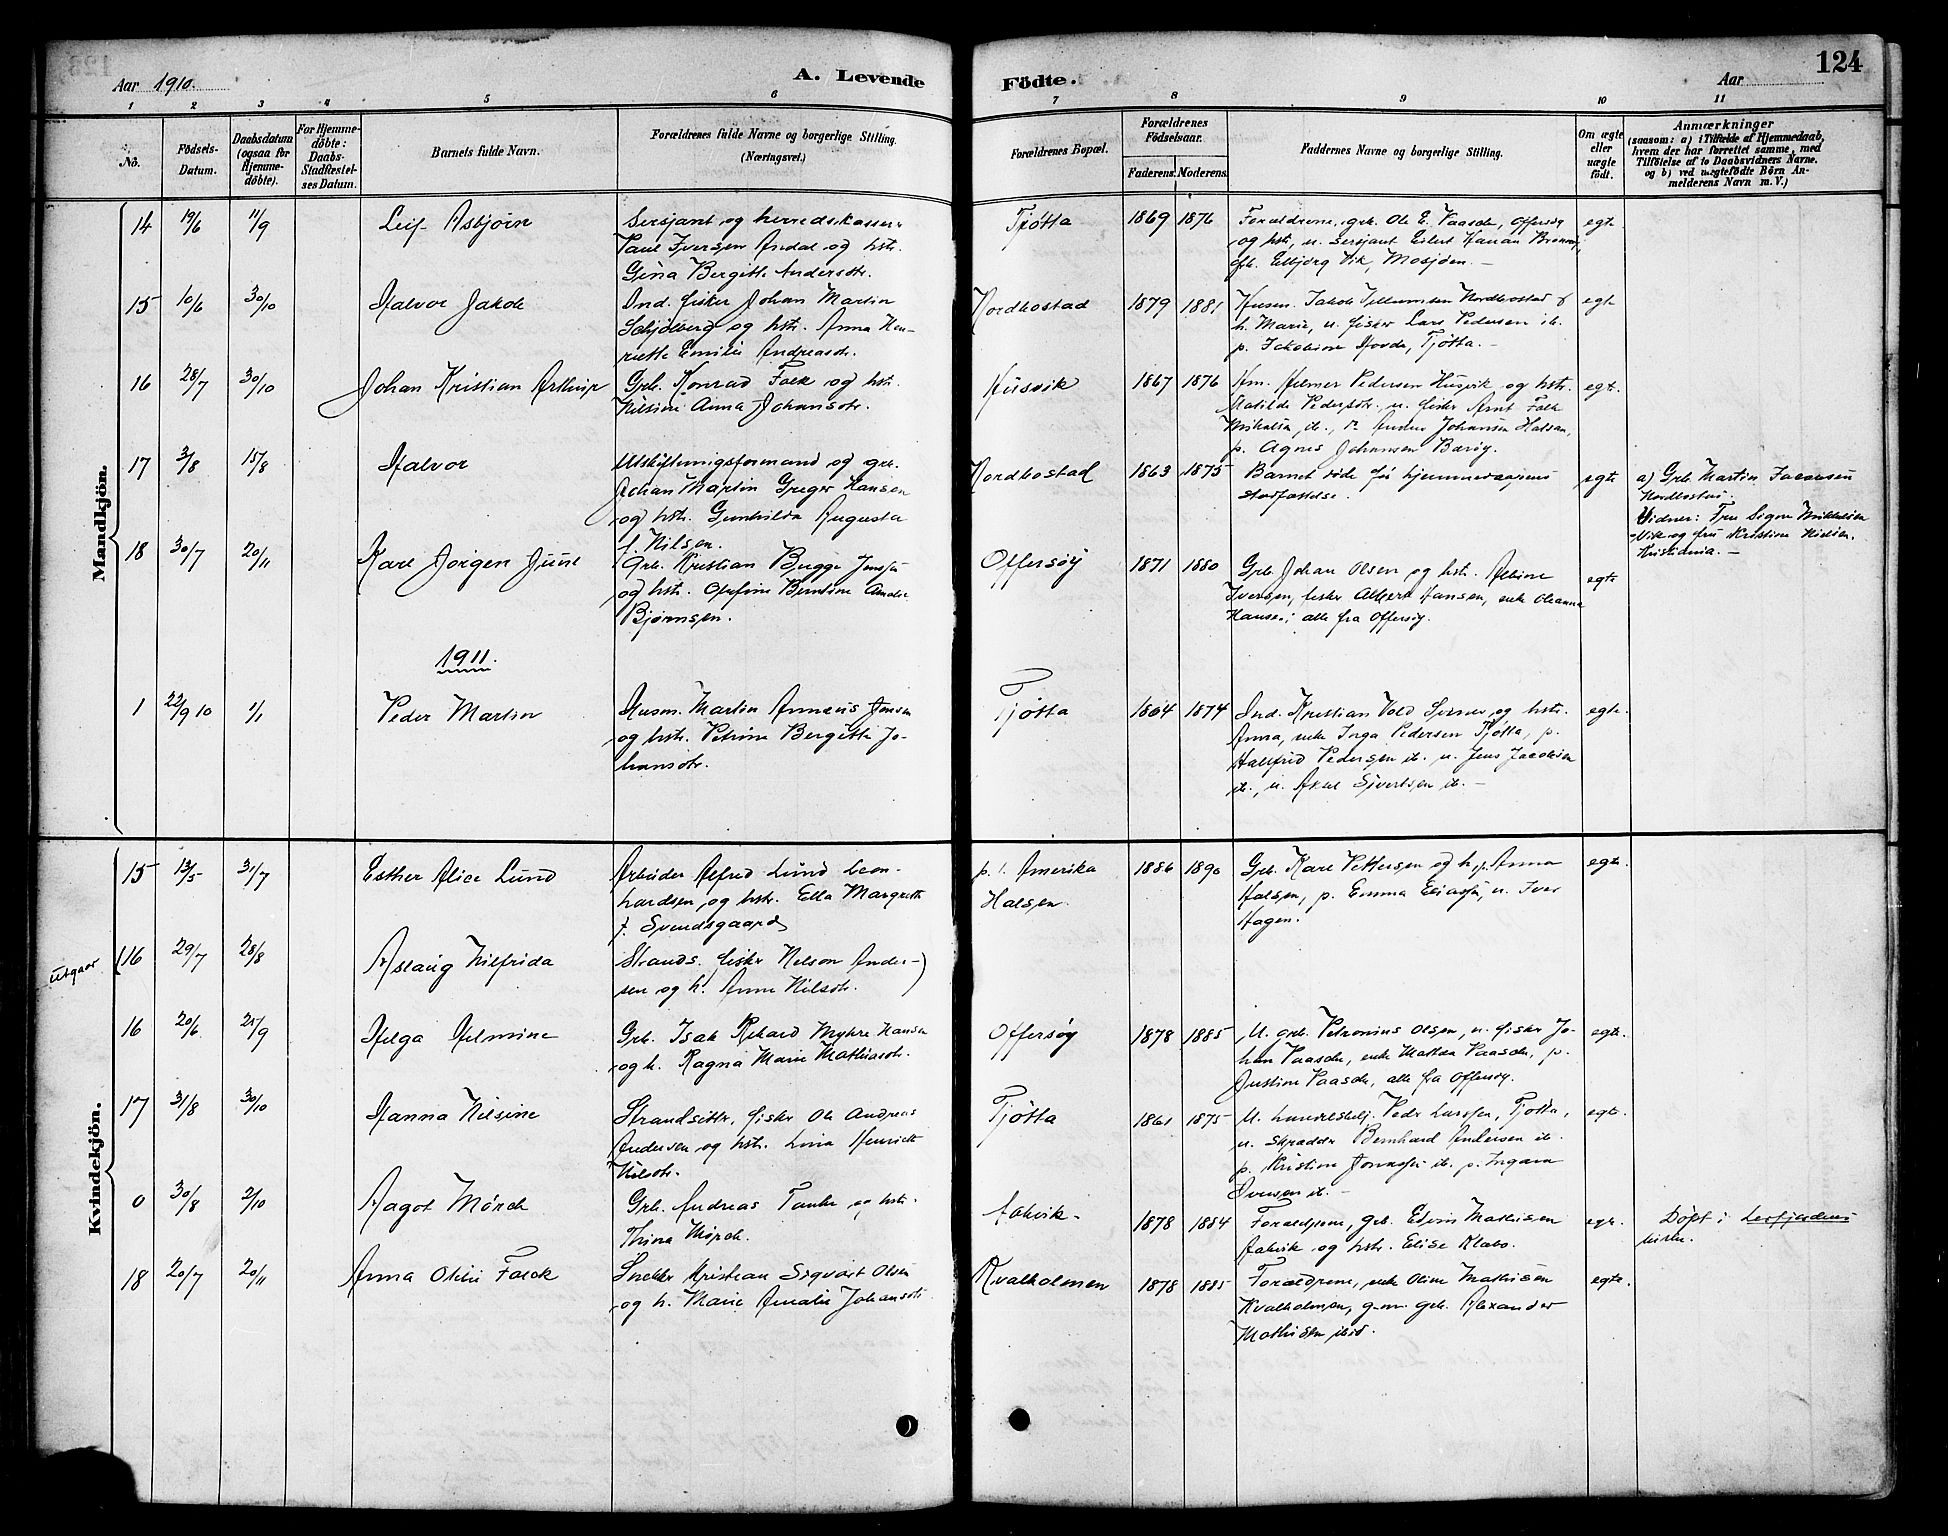 124
Aar 1910.
A. Levende
Födte.
Aar
1 2 3 4 5 6 7 8 9 10 11
No.
Födsels-Datum.
Daabsdatum (ogsaa for Hjemme-döbte).
For Hjemme-döbte: Daabs-Stadfæstel-ses Datum.
Barnets fulde Navn.
Forældrenes fulde Navne og borgerlige Stilling. (Næringsvei.)
Forældrenes Bopæl.
Forældrenes Födselsaar.
Faderens. Moderens.
Faddernes Navne og borgerlige Stilling.
Om ægte eller uægte födt.
Anmærkninger
(saasom: a) i Tilfælde af Hjemmedaab,
hvem der har forrettet samme, med
Tilföielse af to Daabsvidners Navne.
og b) ved uægtefödte Börn An-
melderens Navn m. V.)
Mandkjön.
14 19/6 11/9 Leif Asbjørn
Sersjant og herredskasser
Paul Iversen Andal og hstr.
Gina Bergitte Andersdtr.
Tjøtta 1869 1876
Forældrene, grb. Ole E. Paasche, Offersøy
og hstr, u. sersjant Eilert
Vik, Mosjøen. –
egte
15 10/6 30/10 Halvor Jakob
Ind. fisker Johan Martin
Schjølberg og hstr. Anna Hen-
riette Emilie Andreasdtr.
Nordbostad 1879 1881
Jakob Nordbostad &
h. Marie, u. fisker Lars Pedersen ib.
p. Jakobine Hovde, Tjøtta. –
egte
16 28/7 30/10 Johan Kristian
Grb. Konrad Falk og hstr.
Nilsine Anna Johansdtr.
Husvik 1867 1876
Hm. Helmer Pedersen Husvik og hstr.
Matilde Pedersdtr. u. fisker Arnt Falk
ib., Johansen Halsan,
p. Agnes Johansen Barøy.
egte.
17 3/8 15/8 Halvor
Utskiftningsformand og grb.
Johan Martin Greger Hansen
og hstr. Gunhilda Augusta
f. Nilsen.
Nordbostad 1863 1875
Barnet døde før hjemmedaapens
stadfæstelse.
egte
a) Grb. Martin
Nordbostad.
Vidner: Fru Signe
Vik og fru Kristine Nielsen,
Kristiania. –
18 30/7 20/11 Karl Jørgen Juul
Grb. Kristian Bugge Jensen
og hstr. Berntine Amalie
Bjørnsen.
Offersøy 1871 1880
Grb. Johan Olsen og hstr. Albine
Iversen, fisker Albert Hansen, enke Oleanna
Hansen, alle fra Offersøy.
egte
1911.
1 22/9 10 1/1 Peder Martin
Husm. Martin Jensen
og hstr. Petrine Bergitte Jo-
hansdtr.
Tjøtta 1864 1874
Ind. Kristian Vold og hstr.
Anna, enke Inga Pedersen Tjøtta, p.
Halfrid Pedersen ib. u. Jens Jacobsen
ib., u. Aksel Sivertsen ib. –
egte.
Kvindekjön.
15 13/5 31/7 Esther Alice Lund
Arbeider Alfred Lund Leon-
hardsen, og hstr. Ella Margrethe
f. Svendsgaard
p. t. Amerika
Halsen
1886 1890
Grb. Karl Pettersen og h. Anna
Halsen, p. Emma u. Iver
Hagen.
egte.
utgaar
(16 29/7 28/8 Aslaug Wilfrida
Strands. fisker Nelson Ander-)
sen og h. Anne Nilsdtr.
16 20/6 25/9 Helga Helmine
Grb. Isak Rikard Myhre Hansen
og h. Ragna Marie Mathiasdtr.
Offersøy 1878 1885
U. grb. Petronius Olsen, u. fisker Jo-
han Paasche, enke Mathea Paasche, p.
Justine Paasche, alle fra Offersøy.
egte.
17 31/8 30/10 Hanna Nilsine
Strandsitter, fisker Ole Andreas
Andersen og hstr. Lina Henriette
Nilsdtr.
Tjøtta 1861 1875
U. Peder Larssen, Tjøtta,
u. skrædder Bernhard Andersen ib.
p. Kristine ib. p.
Iversen ib. –
egte.
0 30/8 2/10 Aagot Mørch
Grb. Andreas Tanke og hstr.
Thina Mørch.
1878 1884
Forældrene, grb. Edvin Mathisen
og hstr. Elise Klæbo.
egte.
Døpt i
kirke.
18 20/7 20/11 Anna Otilie Falck
Snekker Kristian Sigvart Olsen
og h. Marie Amalie Johansdtr.
Kvalholmen 1878 1885
Forældrene, enke Oline Mathisen
Kvalholmen, g.m. grb. Alexander
Mathisen ibid.
egte.